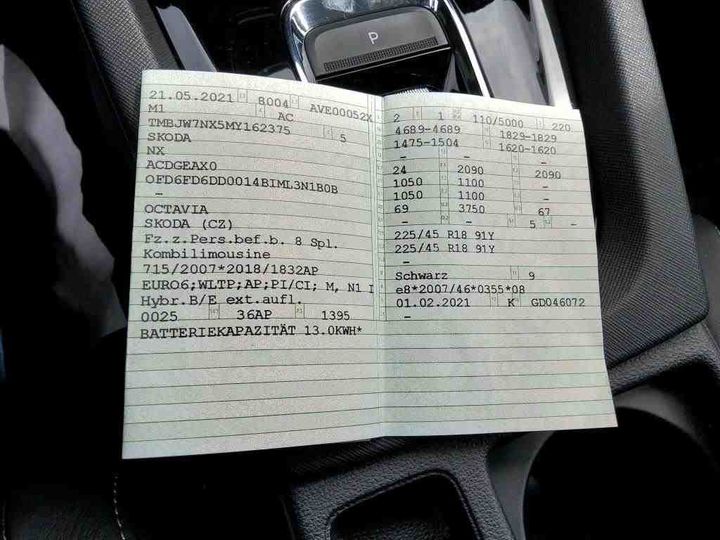 P
21.05.2021 8004 AVE00052X
M1 AC
TMBJW7NX5MY162375 5
SKODA
NX
ACDGEAX0
OFD6FD6DD0014BIML3N1B0B
–
OCTAVIA
SKODA (CZ)
Fz.z.Pers.bef.b. 8 Spl.
Kombilimousine
715/2007*2018/1832AP
EURO6;WLTP;AP;PI/CI; M, N1 I
Hybr.B/E ext.aufl.
0025 36AP 1395
BATTERIEKAPAZITÄT 13.0KWH*
2 1 110/5000 220
4689-4689 1829-1829
1475-1504 1620-1620
– –
24 2090 2090
1050 1100 –
1050 1100 –
69 3750 67
– – 5 –
225/45 R18 91Y
225/45 R18 91Y
–
Schwarz 9
e8*2007/46*0355*08
01.02.2021 K GD046072
–